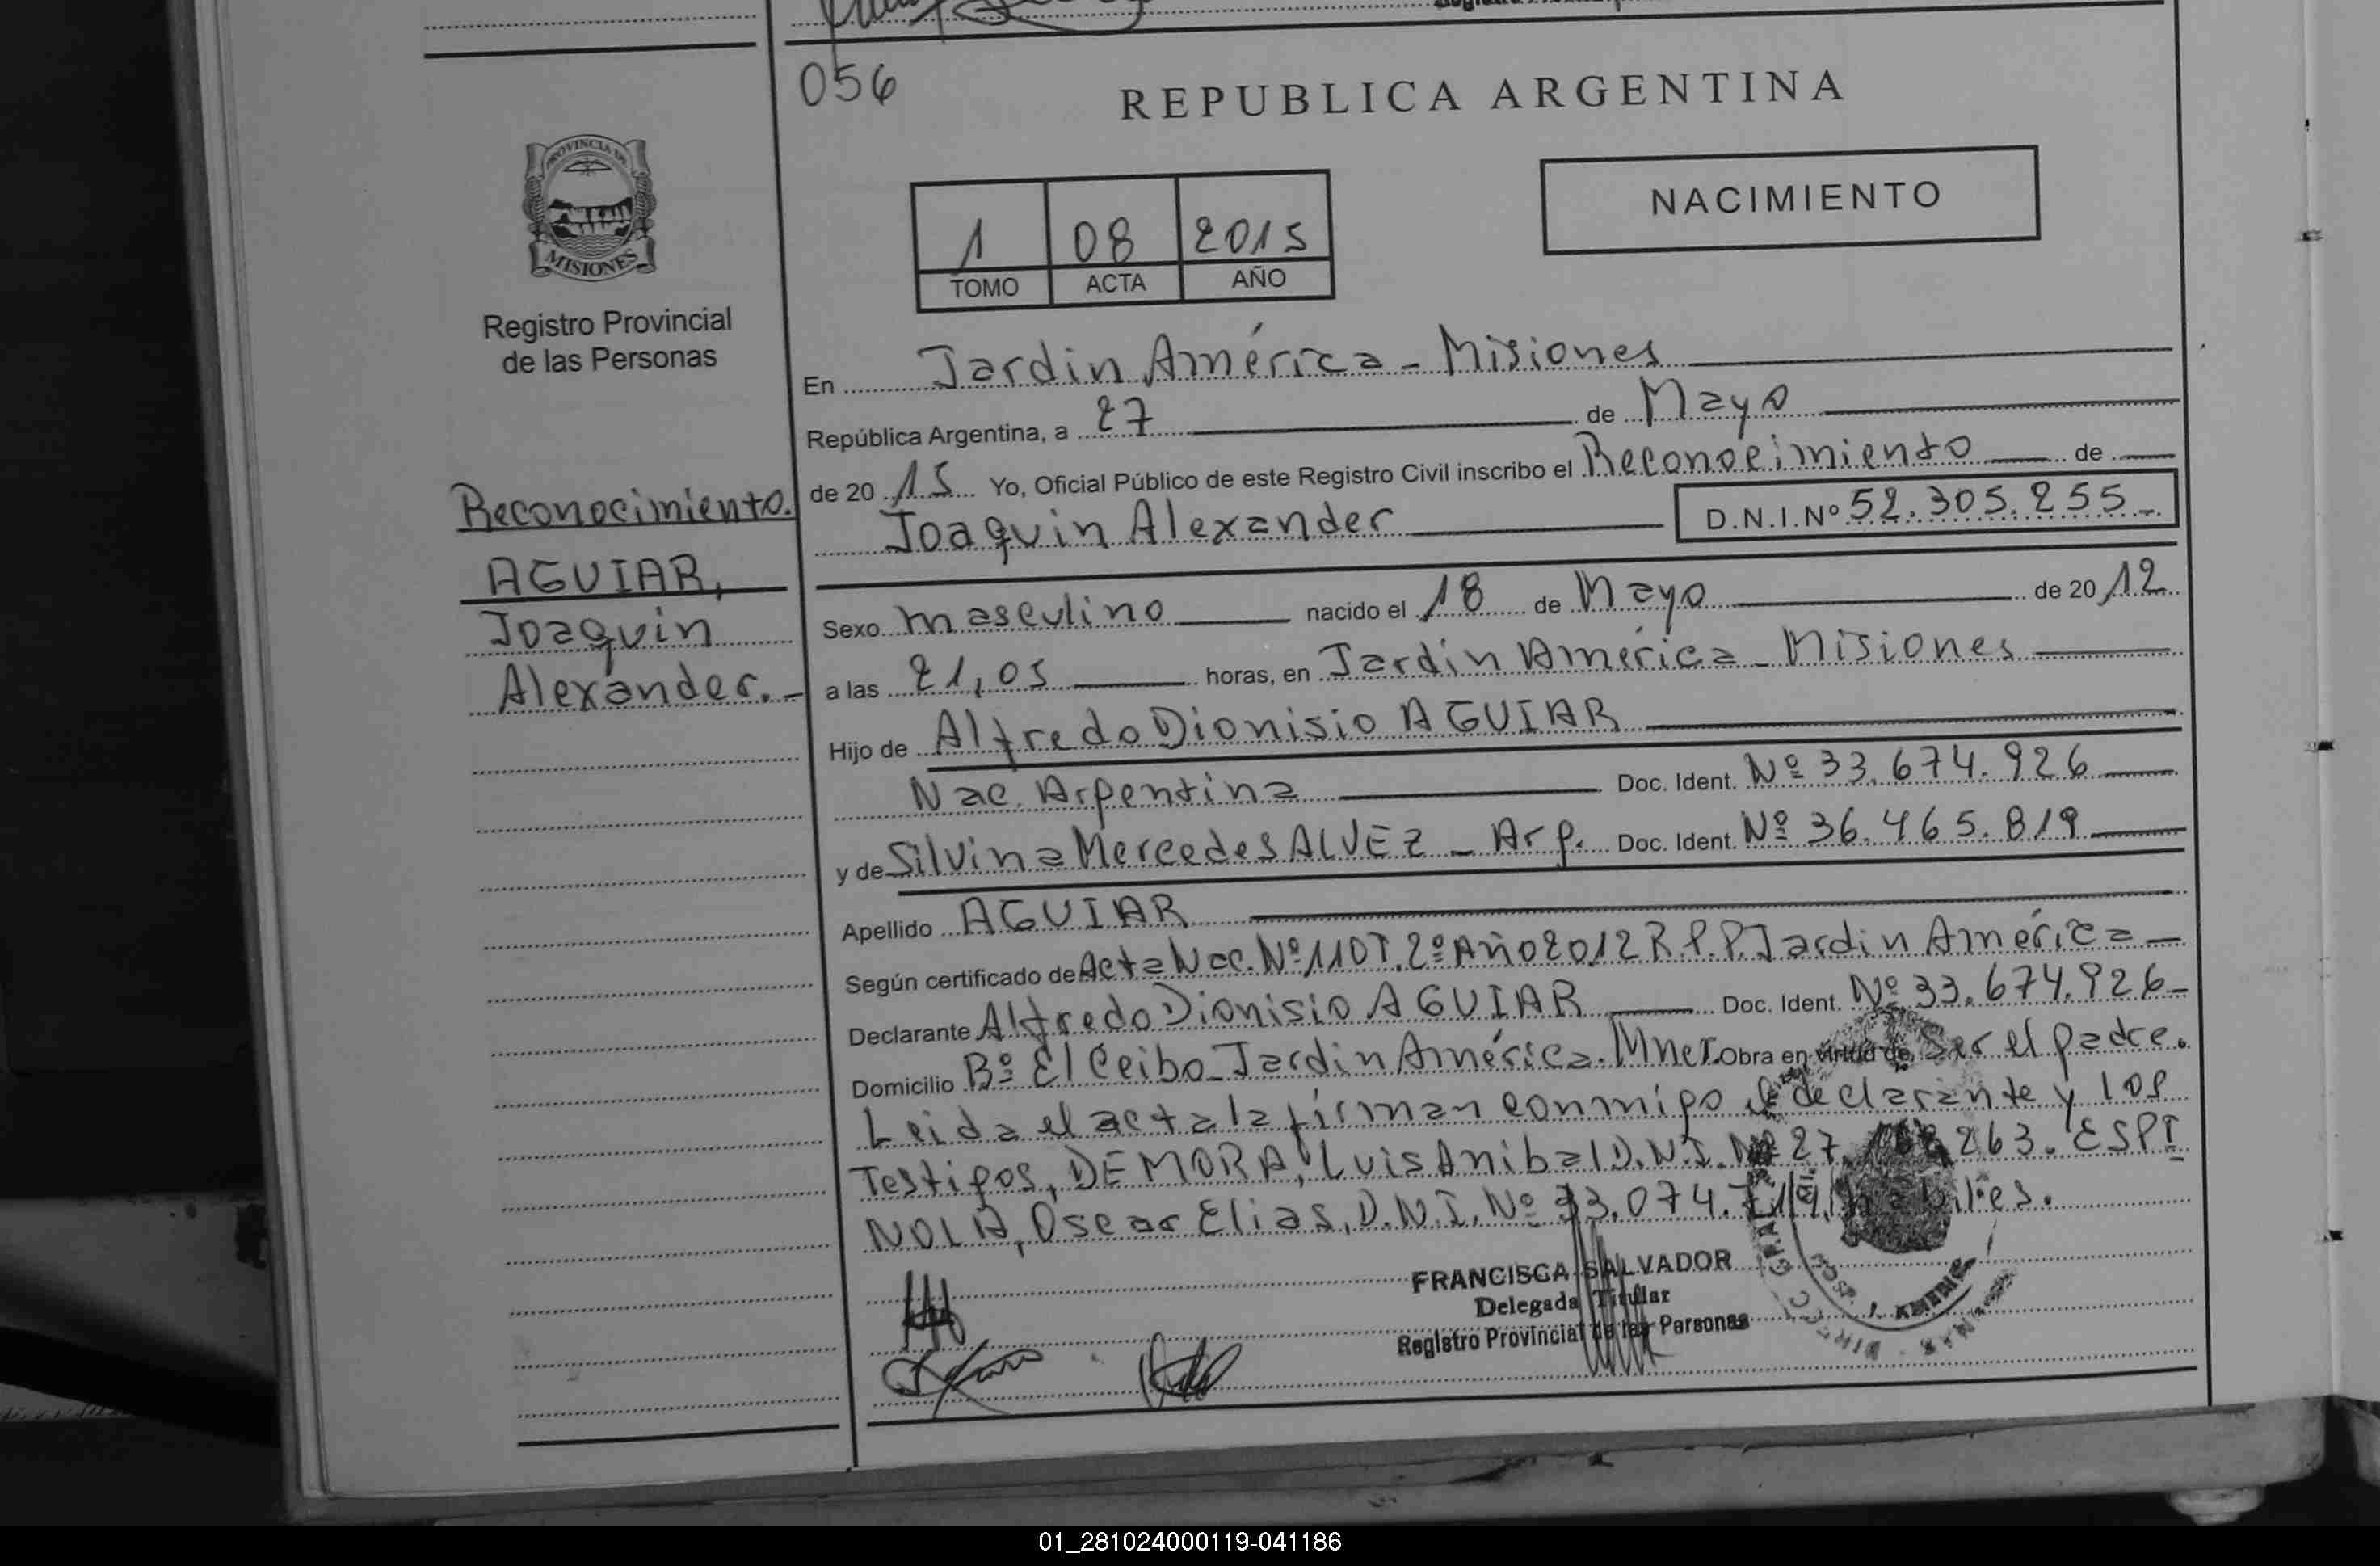 056
REPUBLICA ARGENTINA
NACIMIENTO
PROVINCIA DE
MISIONES
1 08 2015
TOMO ACTA AÑO
Registro Provincial
de las Personas
En Jardin América - Misiones
República Argentina, a 27 de Mayo
de 20 15 Yo, Oficial Público de este Registro Civil inscribo el Reconocimiento de
Joaquin Alexander D.N.I.Nº 52.305.255-
Reconocimiento.
AGUIAR,
Joaquin
Alexander.-
Sexo masculino nacido el 18 de Mayo de 20 12
a las 21,05 horas, en Jardín América - Misiones
Hijo de Alfredo Dionisio AGUIAR
Nac. Argentina Doc. Ident. Nº 33.674.926
y de Silvina Mercedes ALVEZ - Arg. Doc. Ident. Nº 36.465.819
Apellido AGUIAR
Según certificado de Acta Nac. Nº 110 T. 2º Año 2012 R.P.P. Jardin América -
Declarante Alfredo Dionisio AGUIAR Doc. Ident. Nº 33.674.926-
Domicilio Bº El Ceibo - Jardin América. Mnes. Obra en virtud de Ser el padre.
Leida el acta la firman conmigo el declarante y los
Testigos, DEMORA, Luis Anibal D.N.I. Nº 27. 263. ESPI
NOLA, Oscar Elias, D.N.I. Nº 33.074.
FRANCISCA SALVADOR
Delegada Titular
Registro Provincial de las Personas
01_281024000119-041186